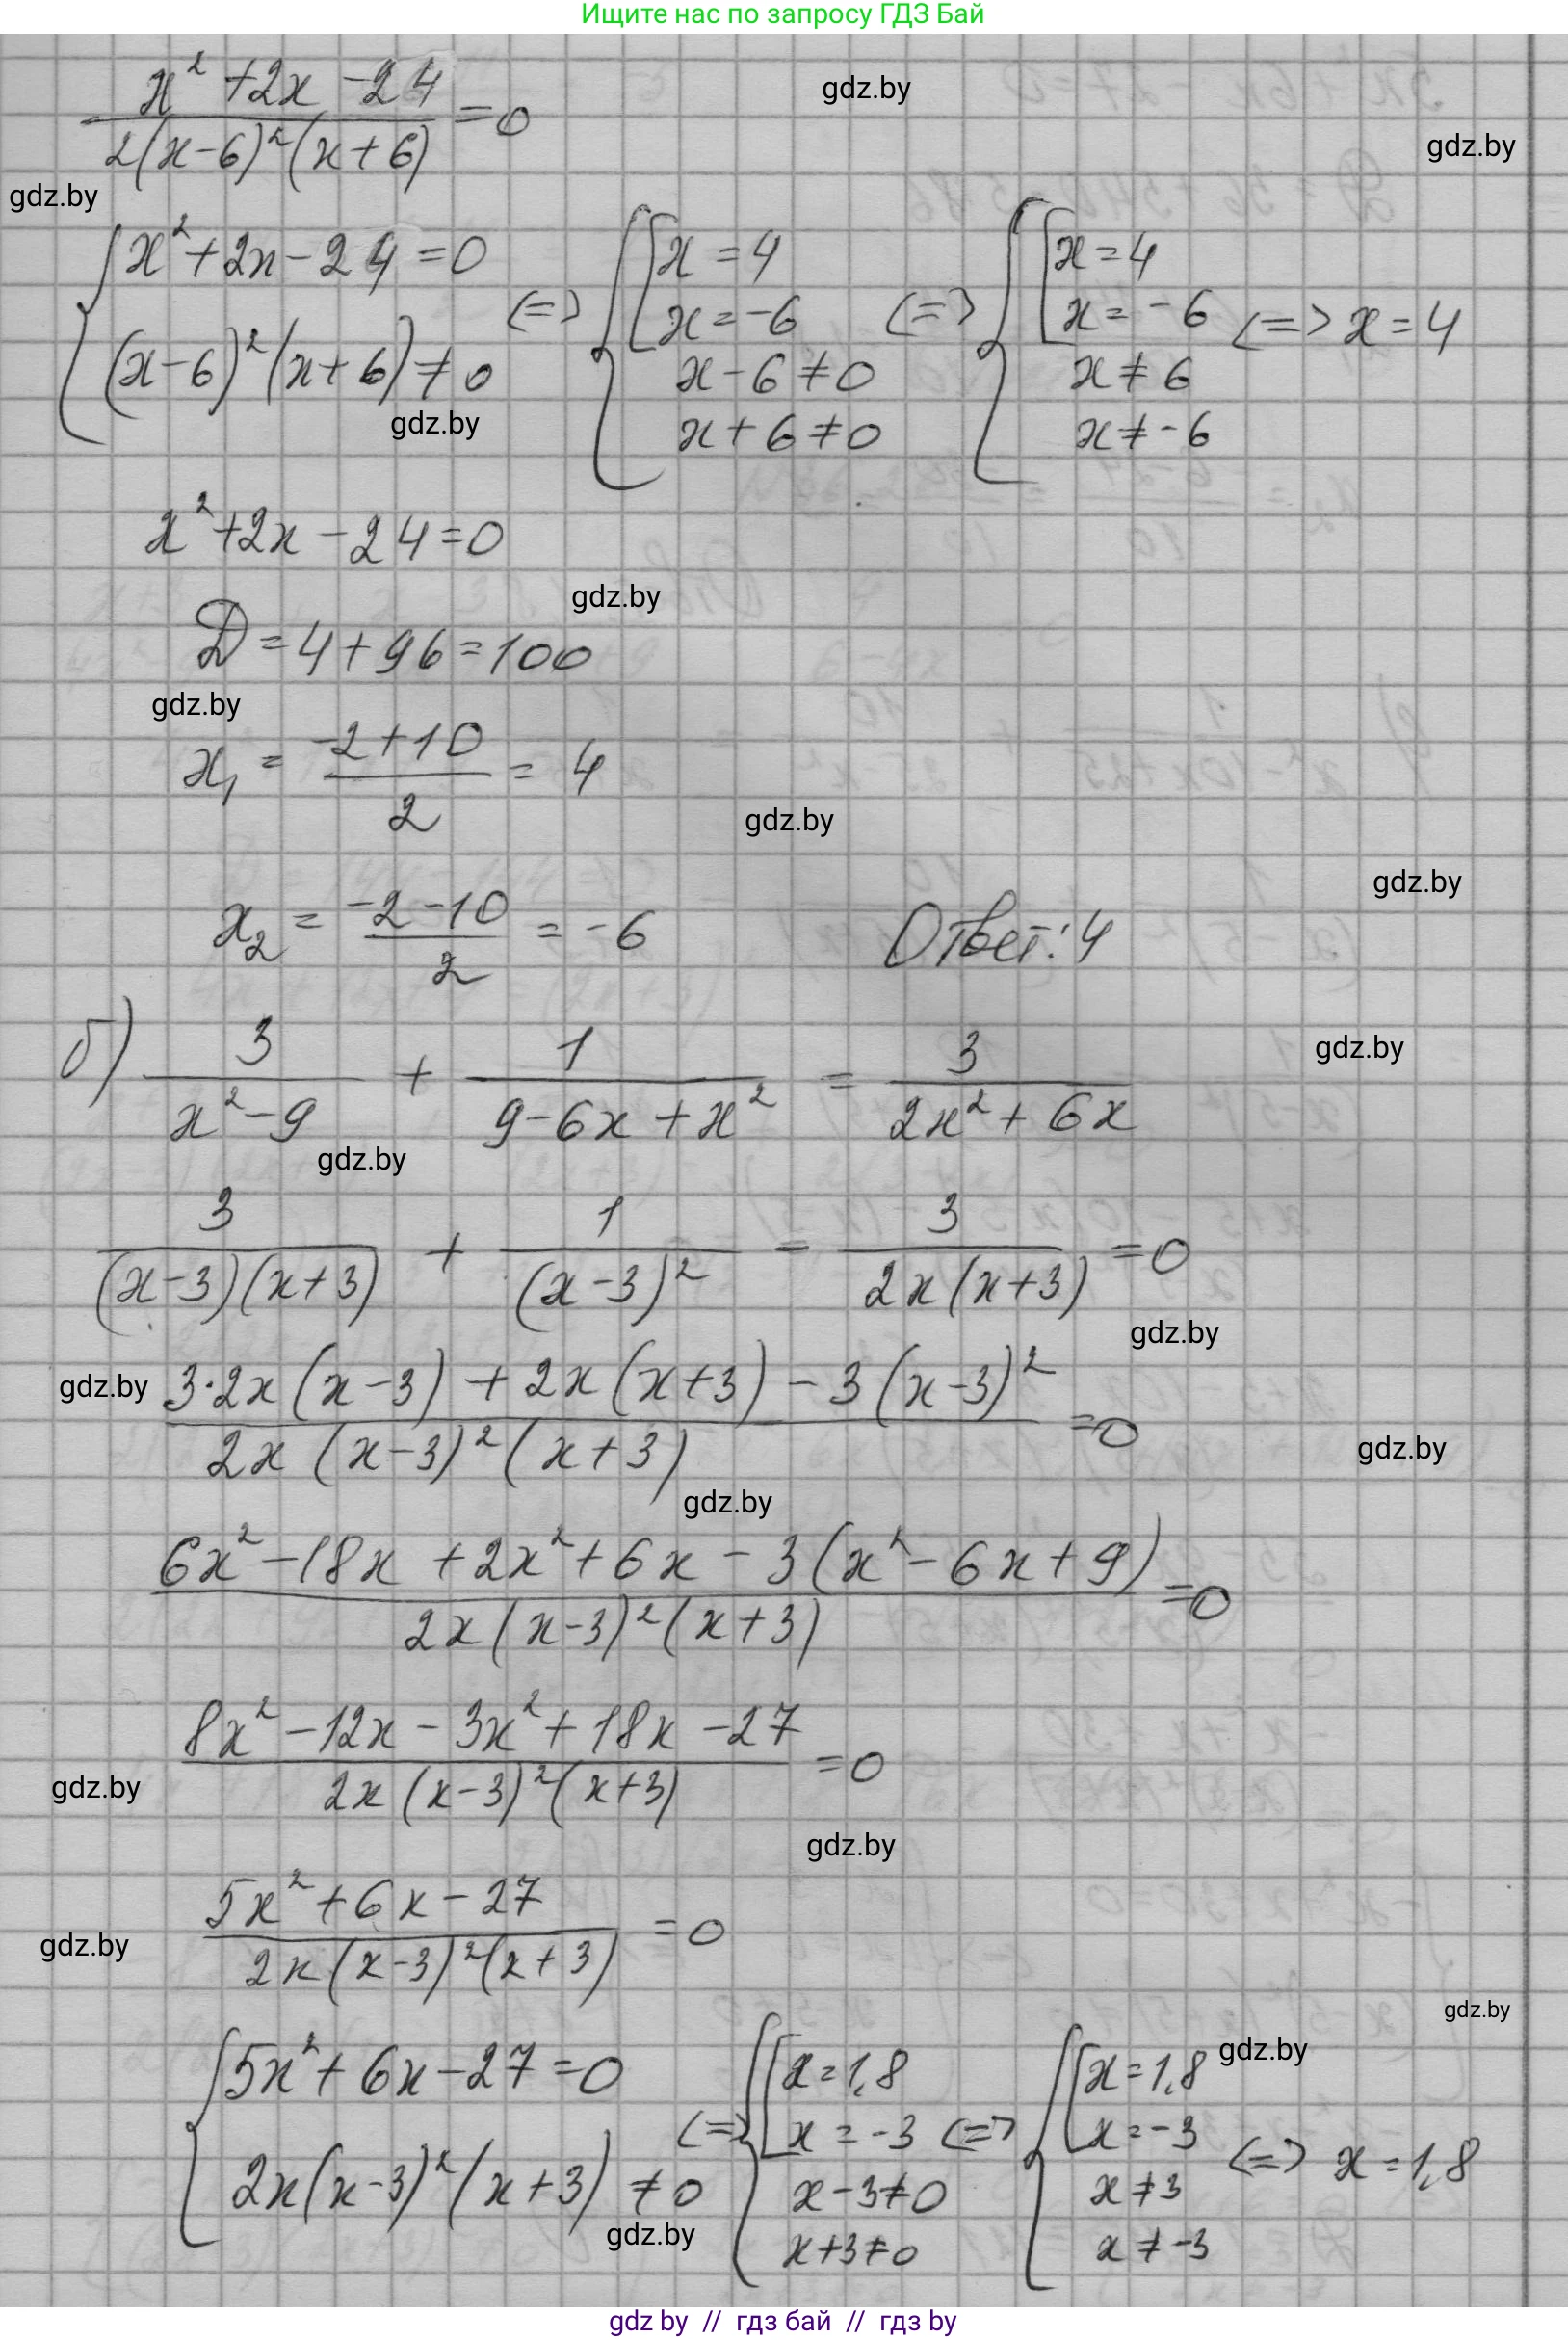 Ищите нас по запросу ГДЗ Бай
gdz.by
x² + 2x - 24 / 2(x-6)²(x+6) = 0
gdz.by
gdz.by
{ x² + 2x - 24 = 0 <=> { [ x = 4 <=> { [ x = 4
x = -6 x = -6 <=> x = 4
(x-6)²(x+6) ≠ 0 x - 6 ≠ 0 x ≠ 6
gdz.by x + 6 ≠ 0 x ≠ -6
x² + 2x - 24 = 0
gdz.by
D = 4 + 96 = 100
gdz.by
x₁ = -2+10 / 2 = 4
gdz.by
gdz.by
x₂ = -2-10 / 2 = -6 Ответ: 4
б) 3 / x²-9 + 1 / 9-6x+x² = 3 / 2x²+6x
gdz.by
gdz.by
3 / (x-3)(x+3) + 1 / (x-3)² - 3 / 2x(x+3) = 0
gdz.by
gdz.by
3·2x(x-3) + 2x(x+3) - 3(x-3)² / 2x(x-3)²(x+3) = 0
gdz.by
gdz.by
6x² - 18x + 2x² + 6x - 3(x² - 6x + 9) / 2x(x-3)²(x+3) = 0
8x² - 12x - 3x² + 18x - 27 / 2x(x-3)²(x+3) = 0
gdz.by
gdz.by
5x² + 6x - 27 / 2x(x-3)²(x+3) = 0
gdz.by
gdz.by
gdz.by
{ 5x² + 6x - 27 = 0 <=> { [ x = 1,8 <=> { [ x = 1,8
x = -3 x = -3 <=> x = 1,8
2x(x-3)²(x+3) ≠ 0 x - 3 ≠ 0 x ≠ 3
gdz.by x + 3 ≠ 0 x ≠ -3
gdz by // гдз бай // гдз by